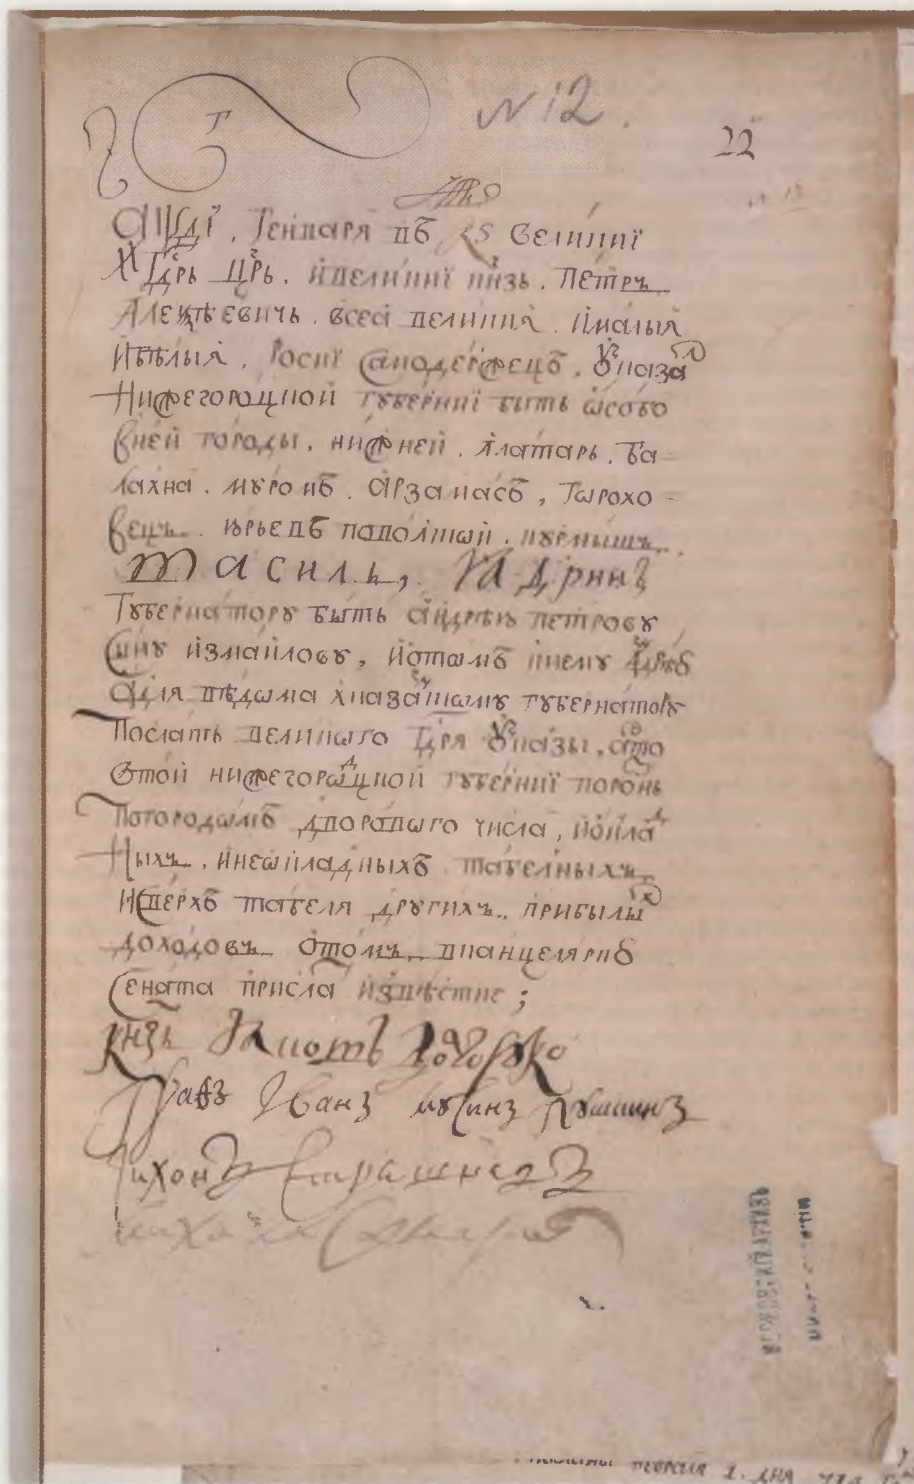 N 12.
22
҂АѰДІ, Генваря въ 25 великиї
Гдрь Црь. и великиї кнзь. Петръ
Алеѯѣевичь. всеѧ великия. и малыя
и бѣлыя. Росиї самодержецъ. ꙋказал
Нижегороцкой гꙋберниї быть ѡсобо
в ней городы, нижней. алатарь. ба-
лахна. мꙋромъ. арзамасъ, горохо-
вецъ. юрьевъ поволской. кꙋрмышъ.
василь, ядринъ
Гꙋбернаторꙋ быть андрѣю петровꙋ
сынꙋ измайловꙋ, и о томъ к немꙋ
а для вѣдома х казанскомꙋ гꙋбернаторꙋ
послать великого Гдря ꙋказы, а что
с той нижегороцкой гꙋберниї порознь
по городомъ дворового числа, и окла
ныхъ. и неѡкладныхъ табелныхъ
и сверхъ табеля дрꙋгихъ. прибылых
доходовъ о томъ в канцелярию
сената присла извѣстие;
Кнзь Яковъ Долгорꙋко
Графъ Иванъ Мꙋсинъ Пꙋшкинъ
Тихонъ Стрешневъ
МОСКОВСКІЙ АРХИВЪ